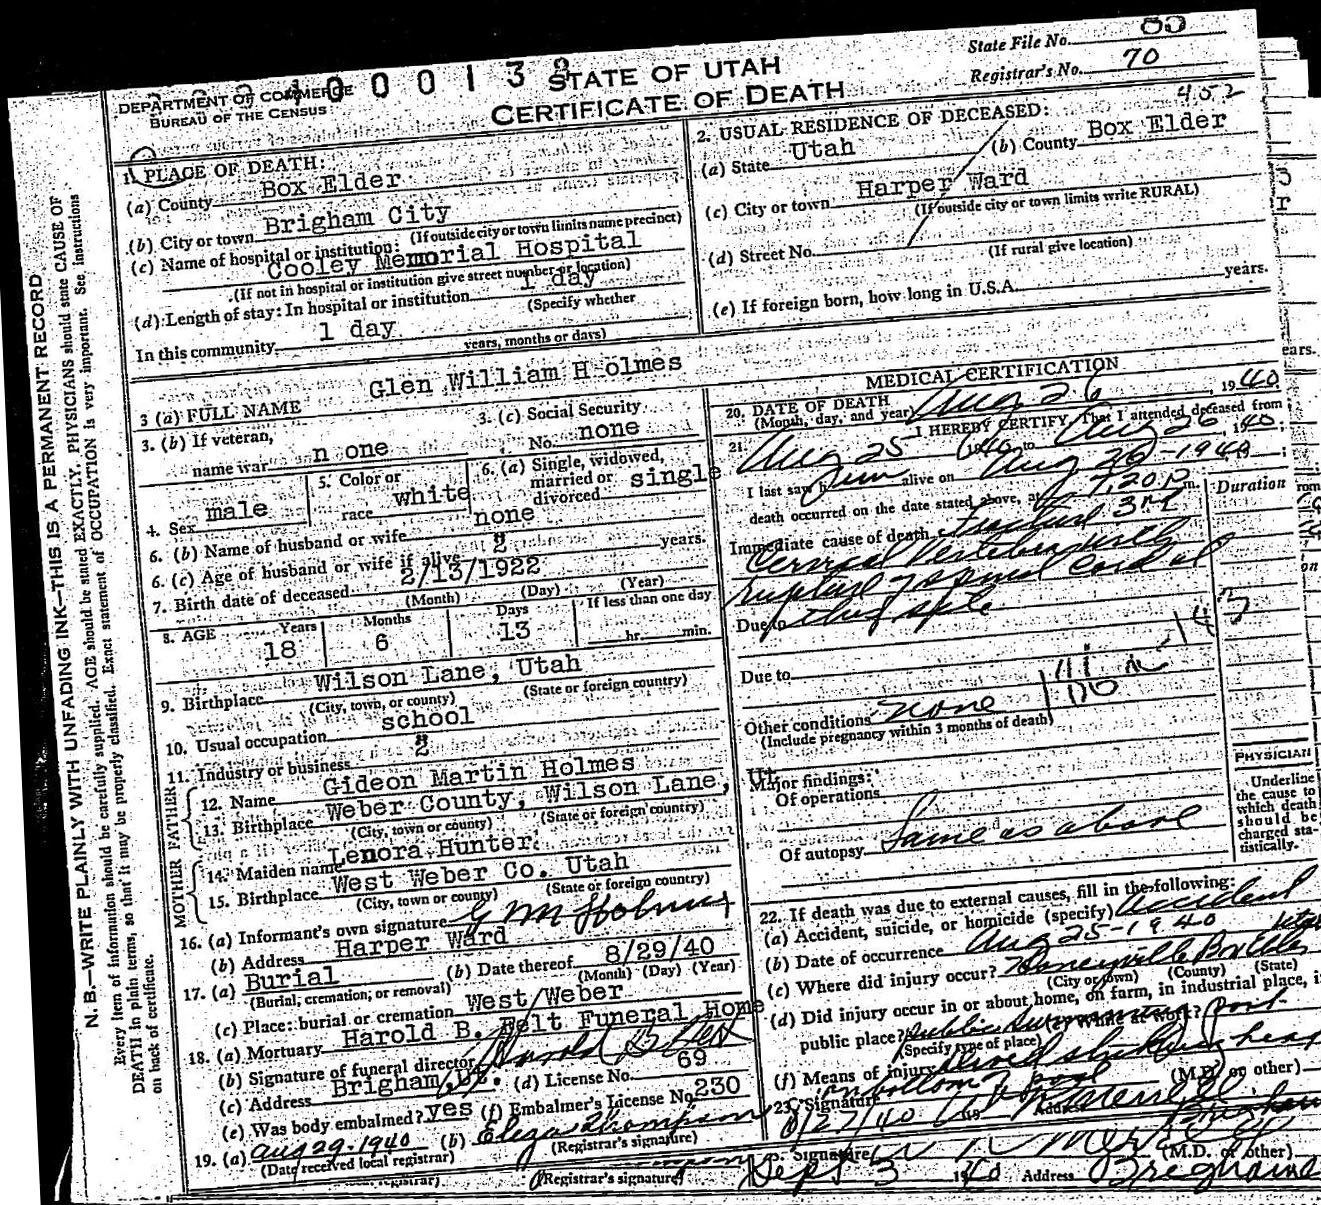 State File No. 85
Registrar's No. 70
0 0 0 1 3
STATE OF UTAH
CERTIFICATE OF DEATH
DEPARTMENT OF COMMERCE
BUREAU OF THE CENSUS
452
1. PLACE OF DEATH:
(a) County Box Elder
(b) City or town Brigham City
(If outside city or town limits name precinct)
(c) Name of hospital or institution:
Cooley Memorial Hospital
(If not in hospital or institution give street number or location)
(d) Length of stay: In hospital or institution 1 day
(Specify whether
In this community 1 day
years, months or days)
2. USUAL RESIDENCE OF DECEASED:
(a) State Utah (b) County Box Elder
(c) City or town Harper Ward
(If outside city or town limits write RURAL)
(d) Street No.
(If rural give location)
(e) If foreign born, how long in U.S.A. years.
3 (a) FULL NAME Glen William Holmes
3. (b) If veteran,
name war none
3. (c) Social Security
No. none
4. Sex male
5. Color or
race white
6. (a) Single, widowed,
married or
divorced single
6. (b) Name of husband or wife none
6. (c) Age of husband or wife if alive years.
7. Birth date of deceased 2/13/1922
(Month) (Day) (Year)
8. AGE Years 18 Months 6 Days 13 If less than one day
hr. min.
9. Birthplace Wilson Lane, Utah
(City, town, or county) (State or foreign country)
10. Usual occupation school
11. Industry or business
FATHER
12. Name Gideon Martin Holmes
13. Birthplace Weber County, Wilson Lane, Ut
(City, town or county) (State or foreign country)
MOTHER
14. Maiden name Lenora Hunter
15. Birthplace West Weber Co. Utah
(City, town or county) (State or foreign country)
16. (a) Informant's own signature G M Holmes
(b) Address Harper Ward
17. (a) Burial (b) Date thereof 8/29/40
(Burial, cremation, or removal) (Month) (Day) (Year)
(c) Place: burial or cremation West Weber
18. (a) Mortuary Harold B. Felt Funeral Home
(b) Signature of funeral director Harold B Felt
(c) Address Brigham, Ut. (d) License No. 69
(e) Was body embalmed? yes (f) Embalmer's License No. 230
19. (a) Aug 29-1940 (b) Eliza Thompson
(Date received local registrar) (Registrar's signature)
registrar) (Registrar's signature)
MEDICAL CERTIFICATION
20. DATE OF DEATH
(Month, day, and year) Aug 26, 1940
21. I HEREBY CERTIFY, That I attended deceased from
Aug 25 1940, to Aug 26, 1940;
I last saw him alive on Aug 26-1940;
death occurred on the date stated above, at 7:20 P m.
Duration
Immediate cause of death Fracture 3rd
Cervical Vertebra with
rupture of spinal cord at
Due to this site
Due to
Other conditions none
(Include pregnancy within 3 months of death)
Major findings:
Of operations
Of autopsy Same as above
PHYSICIAN
Underline
the cause to
which death
should be
charged sta-
tistically.
22. If death was due to external causes, fill in the following:
(a) Accident, suicide, or homicide (specify) Accident
(b) Date of occurrence Aug 25-1940
(c) Where did injury occur? Honeyville Box Elder Utah
(City or town) (County) (State)
(d) Did injury occur in or about home, on farm, in industrial place, in
public place? Public Swimming pool While at work?
(Specify type of place)
(f) Means of injury Dived striking head
on bottom of pool
23. Signature (M.D. or other)
8/27/40 Address Brigham
Signature (M.D. or other)
Sept 3 1940 Address Brigham
N. B.—WRITE PLAINLY WITH UNFADING INK—THIS IS A PERMANENT RECORD
Every item of information should be carefully supplied. AGE should be stated EXACTLY. PHYSICIANS should state CAUSE OF
DEATH in plain terms, so that it may be properly classified. Exact statement of OCCUPATION is very important. See instructions
on back of certificate.